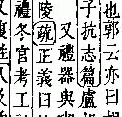 也郭云亦曰
子抗志篇盧
又禮器與
陵疏正義曰
禮冬官考工